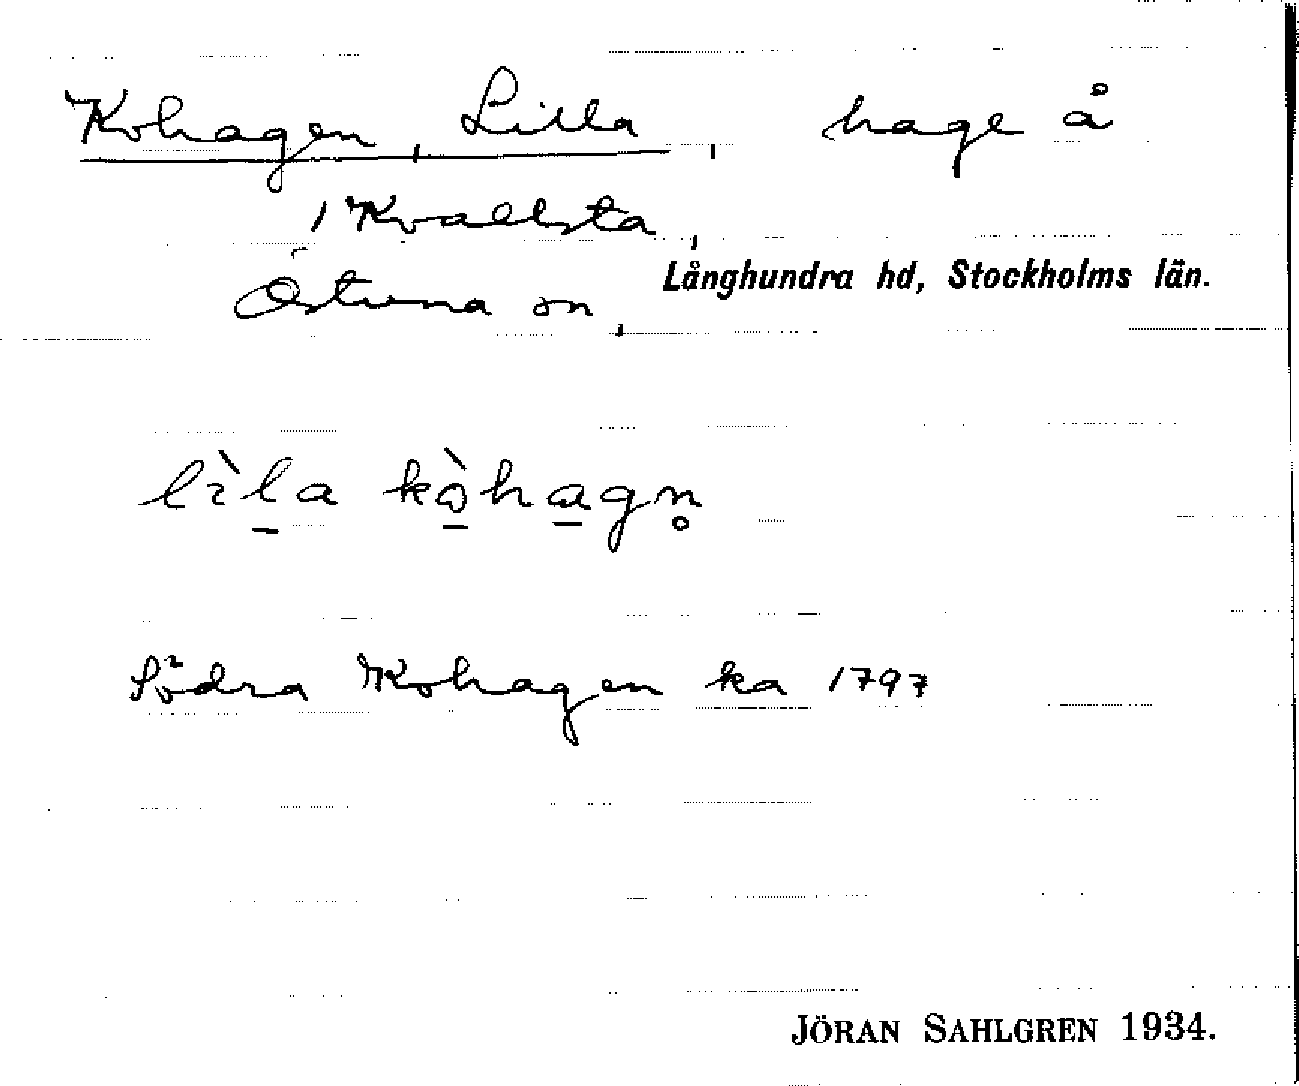 Kohagen, Lilla, hage å
1 Kvallsta,
Östuna sn, Långhundra hd, Stockholms län.
lìl̠a kò̠ha̠gn̥
Södra Kohagen ka 1797
JÖRAN SAHLGREN 1934.